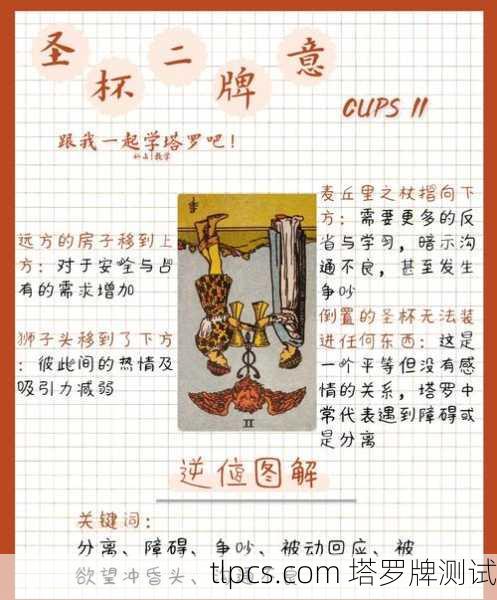 圣杯二牌意
CUPS II
跟我一起学塔罗吧！
麦丘里之杖指向下
方：需要更多的反
省与学习，暗示沟
通不良，甚至发生
争吵
远方的房子移到上
方：对于安全与占
有的需求增加
倒置的圣杯无法装
进任何东西：这是
一个平等但没有感
情的关系，塔罗中
常代表遇到障碍或
是分离
狮子头移到了下方
：彼此间的热情及
吸引力减弱
II
逆位图解
关键词：
分离、障碍、争吵、被动回应、被
欲望冲昏头、
tlpcs.com 塔罗牌测试